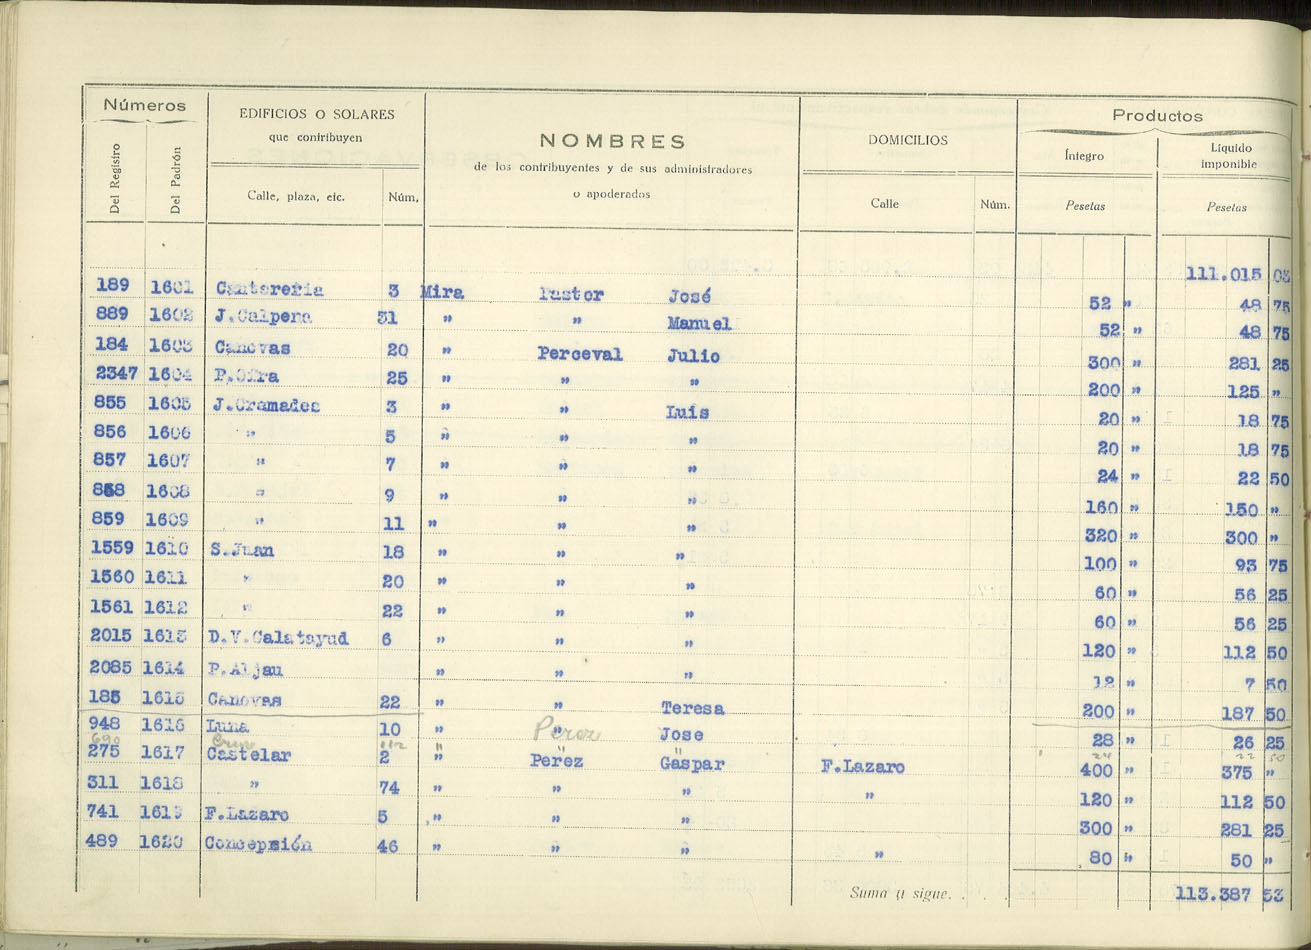 Números EDIFICIOS O SOLARES que contribuyen NOMBRES de los contribuyentes y de sus administradores o apoderados DOMICILIOS Productos
Del Registro Del Padrón Calle, plaza, etc. Núm. Calle Núm. Íntegro Líquido imponible
Pesetas Pesetas
111.015 03
189 1601 Cantereria 3 Mira Pastor José 52 " 48 75
889 1602 J.Calpena 31 " " Manuel 52 " 48 75
184 1603 Canovas 20 " Perceval Julio 300 " 281 25
2347 1604 P.Ofra 25 " " " 200 " 125 "
855 1605 J.Cramades 3 " " Luis 20 " 18 75
856 1606 " 5 " " " 20 " 18 75
857 1607 " 7 " " " 24 " 22 50
858 1608 " 9 " " " 160 " 150 "
859 1609 " 11 " " " 320 " 300 "
1559 1610 S.Juan 18 " " " 100 " 93 75
1560 1611 " 20 " " " 60 " 56 25
1561 1612 " 22 " " " 60 " 56 25
2015 1613 D.V.Calatayud 6 " " " 120 " 112 50
2085 1614 P.Aljau " " " 12 " 7 50
185 1615 Canovas 22 " " Teresa 200 " 187 50
948 1616 Luna 10 " " Perez Jose 28 " 26 25
690 Cruz " " " 24 22 50
275 1617 Castelar 2 " Perez Gaspar F.Lazaro 400 " 375 "
311 1618 " 74 " " " " 120 " 112 50
741 1619 F.Lazaro 5 " " " 300 " 281 25
489 1620 Concepsión 46 " " " " 80 " 50 "
Suma y sigue. . . . 113.387 53